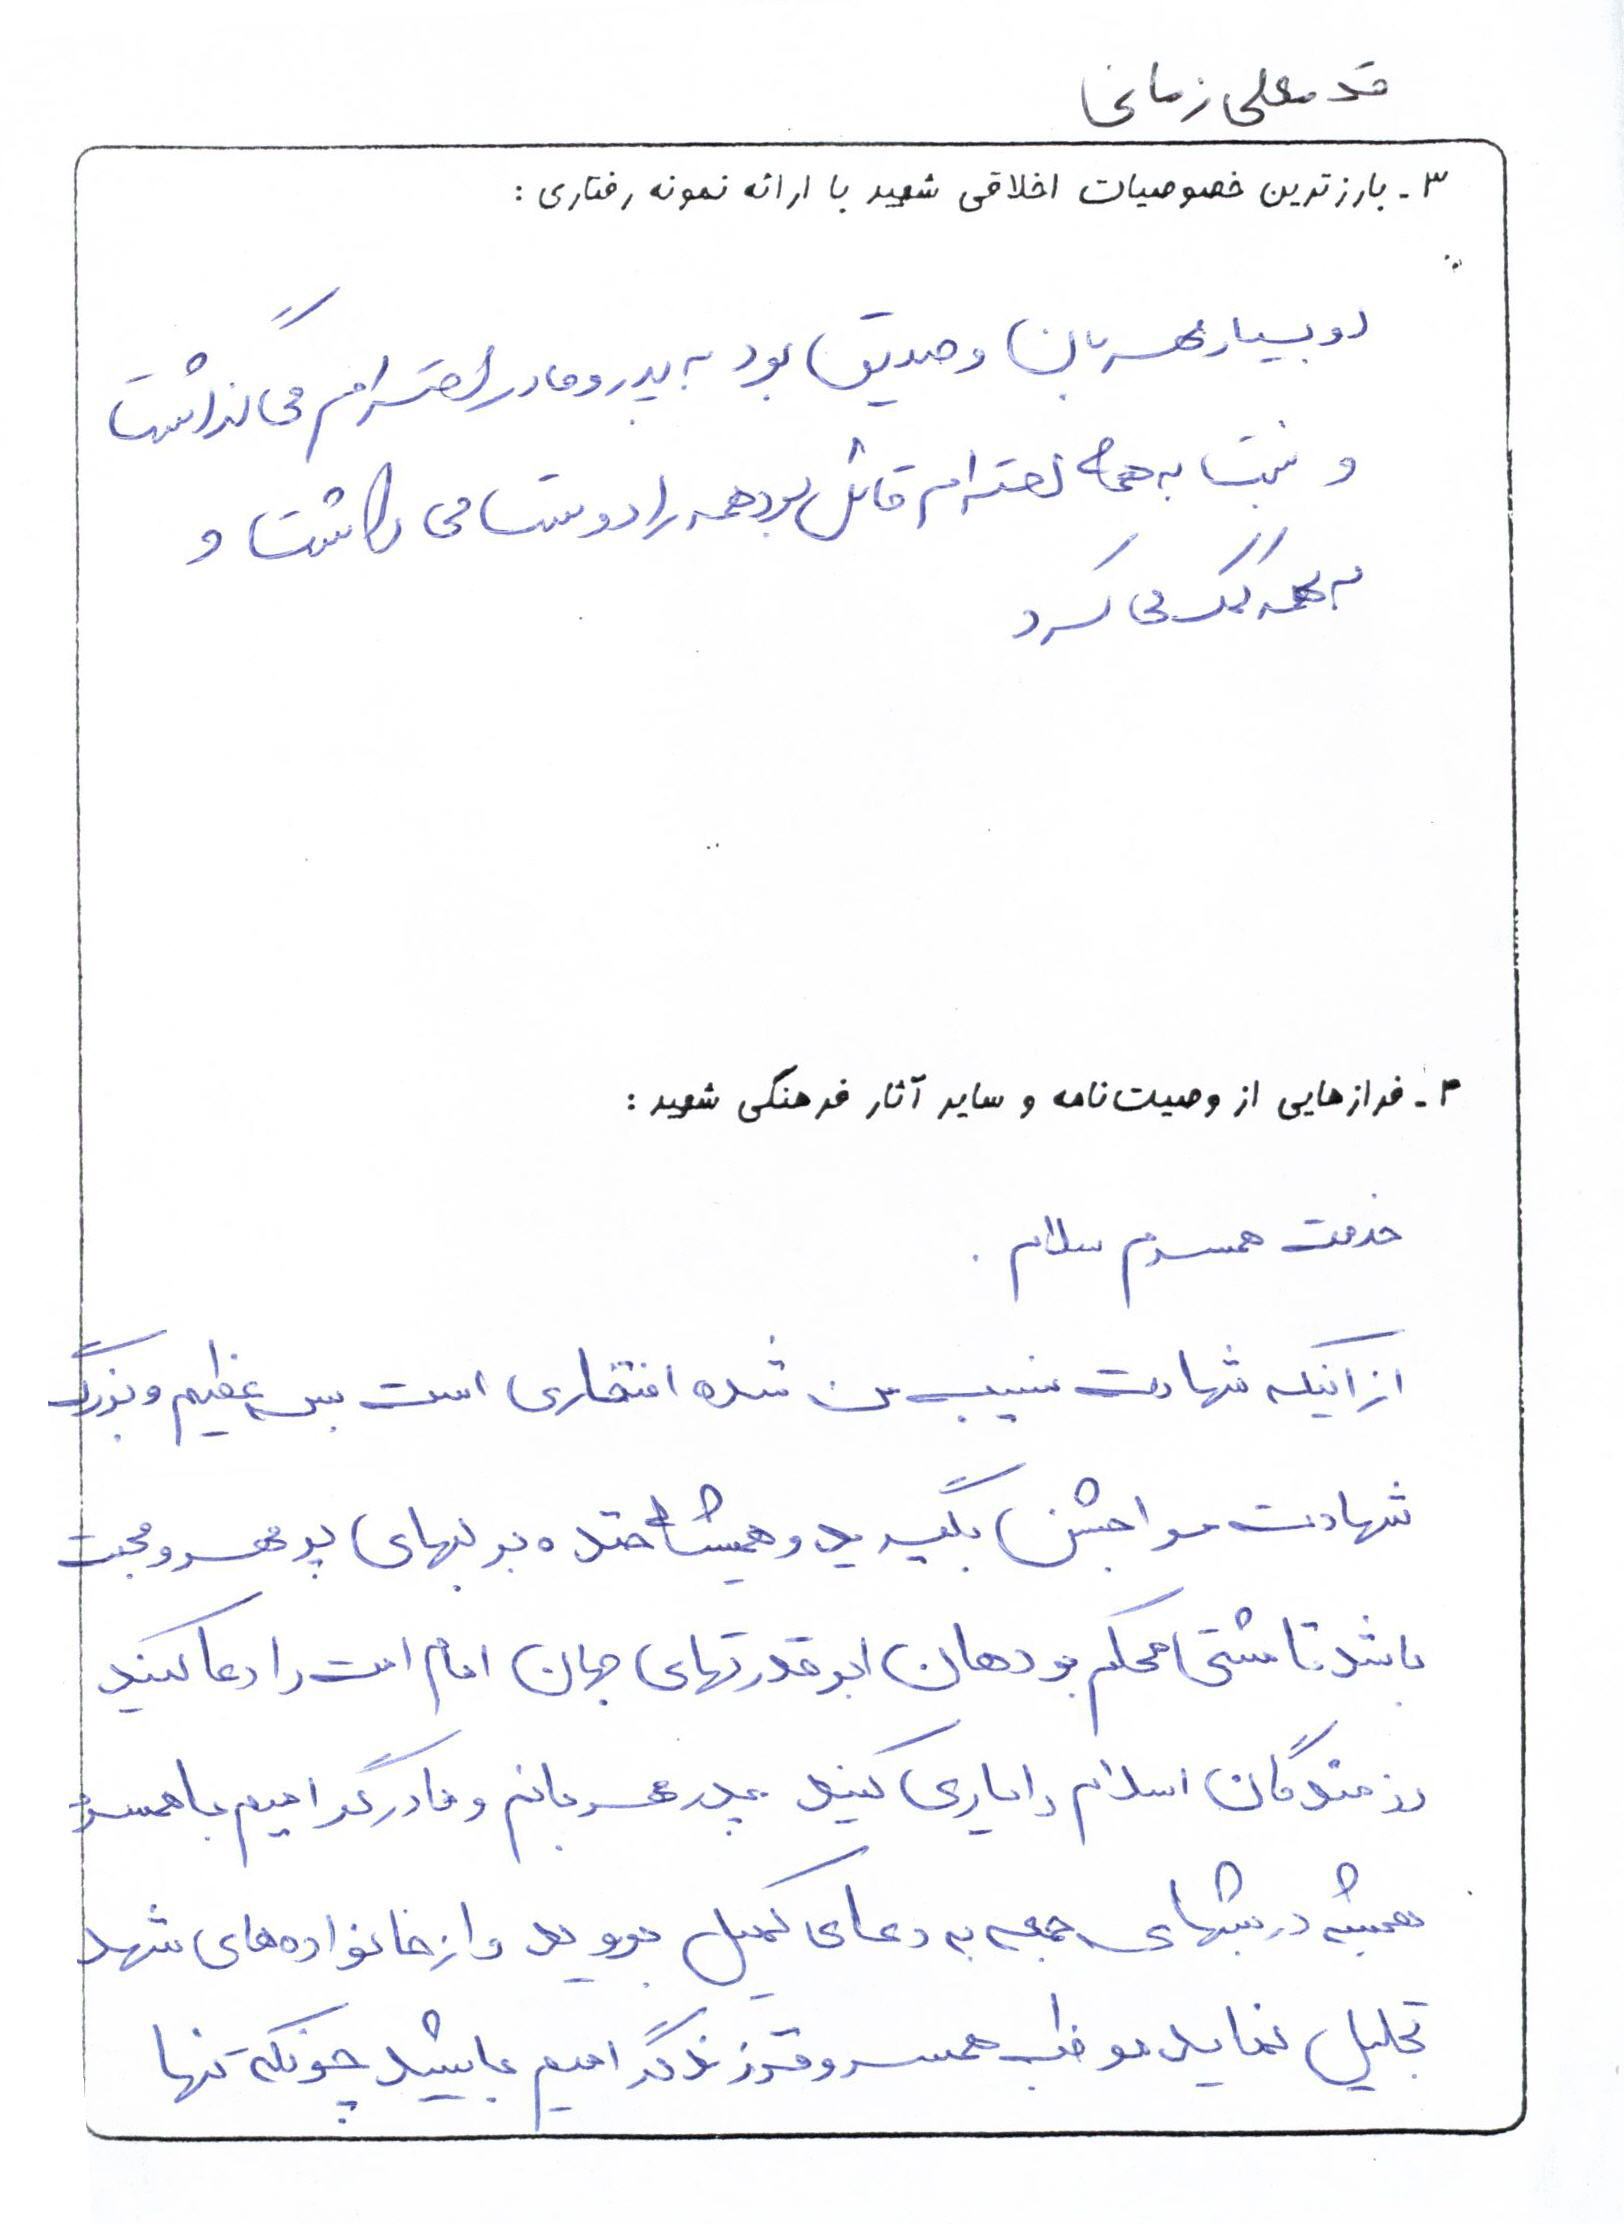 قدمعلی زمانی
۳ـ بارزترین خصوصیات اخلاقی شهید با ارائه نمونه رفتاری :
او بسیار مهربان و صدیق بود به پدر و مادر احترام می گذاشت
و نسبت به همه احترام قائل بود همه را دوست می داشت و
به همه کمک می کرد
۴ـ فرازهایی از وصیت‌نامه و سایر آثار فرهنگی شهید :
خدمت همسرم سلام .
از اینکه شهادت نصیب من شده افتخاری است بس عظیم و بزرگ
شهادت مرا جشن بگیرید و همیشه خنده بر لبهای پر مهر و محبت
باشد تا مشتی محکم بر دهان ابرقدرتهای جهان امام امت را دعا کنید
رزمندگان اسلام را یاری کنید پدر مهربانم و مادر گرامیم با همسرم
همیشه در شبهای جمعه به دعای کمیل بروید و از خانواده های شهد
تجلیل نماید مواظب همسر و فرزند گرامیم باشید چونکه تنها